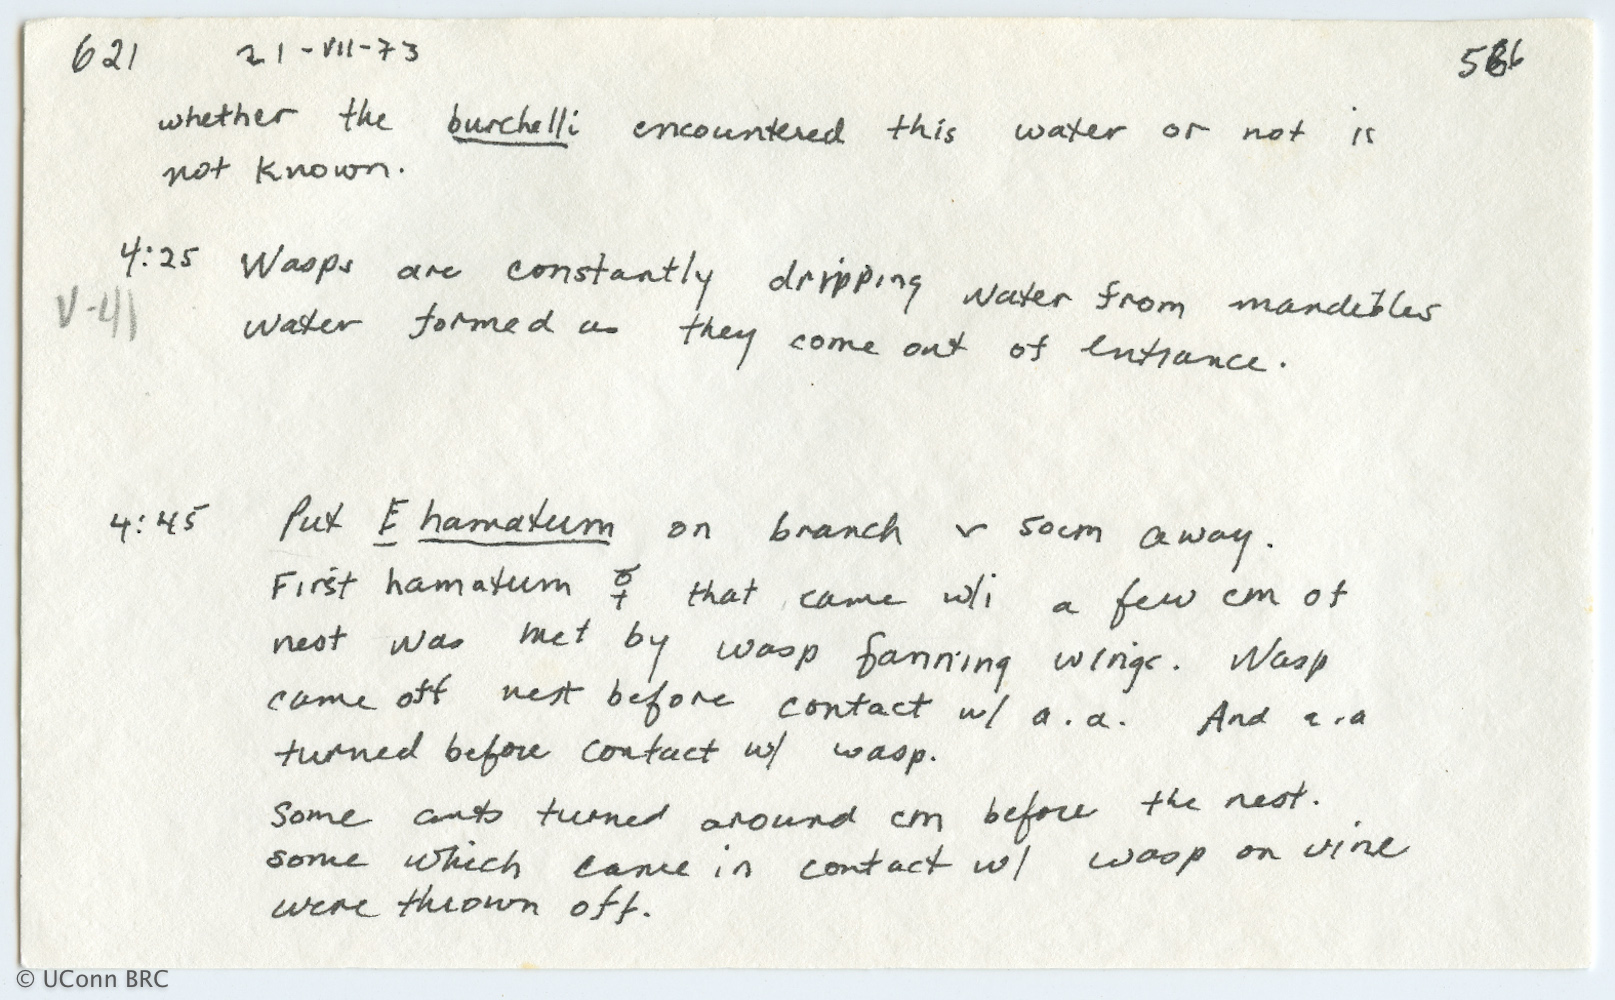 621 21-VII-73 566
whether the burchelli encountered this water or not is
not known.
4:25 Wasps are constantly dripping water from mandibles
V-41 water formed as they come out of entrance.
4:45 Put E hamatum on branch ~ 50cm away.
First hamatum ☿ that came w/i a few cm of
nest was met by wasp fanning wings. Wasp
came off nest before contact w/ a.a. And a.a
turned before contact w/ wasp.
Some ants turned around cm before the nest.
some which came in contact w/ wasp on vine
were thrown off.
© UConn BRC